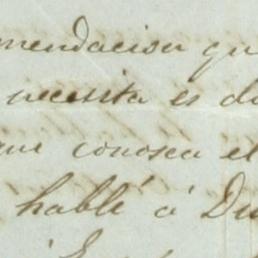 mendacion qu
necesita es d
que conosca el
hablé á Du